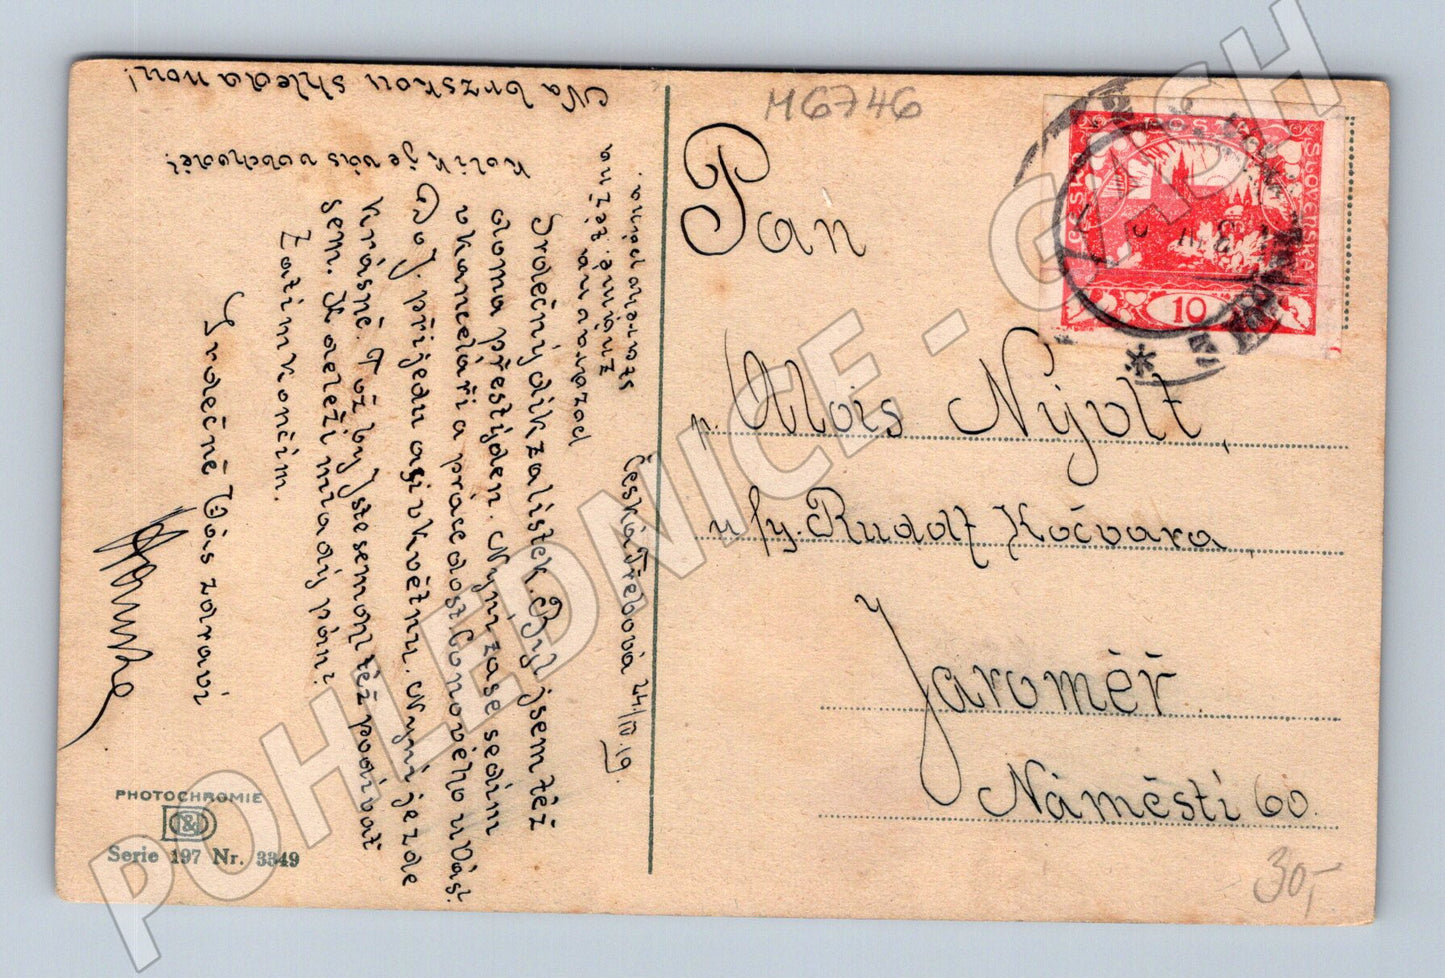 M6746
Pan
p. Alois Nývlt,
u fy. Rudolf Kočvara,
Jaroměř.
Náměstí 60.
30,-
ČESKO
POŠTA
SLOVENSKÁ
10
Česká Třebová 24/III 19.
Srdečný dík za lístek. Byl jsem též
doma přes týden. Nyní zase sedím
v kanceláři a práce dost co nového u Vás?
Do J. přijedu asi v květnu. Nyní je zde
krásně. Což by jste se mohl též podívat
sem. Kde leží mladý pán?
Zatím končím.
Srdečně Vás zdraví
Kolik je vás v obchodě?
Na brzskou shledanou!
PHOTOCHROMIE
Serie 197 Nr. 3349
POHLEDNICE - GASH